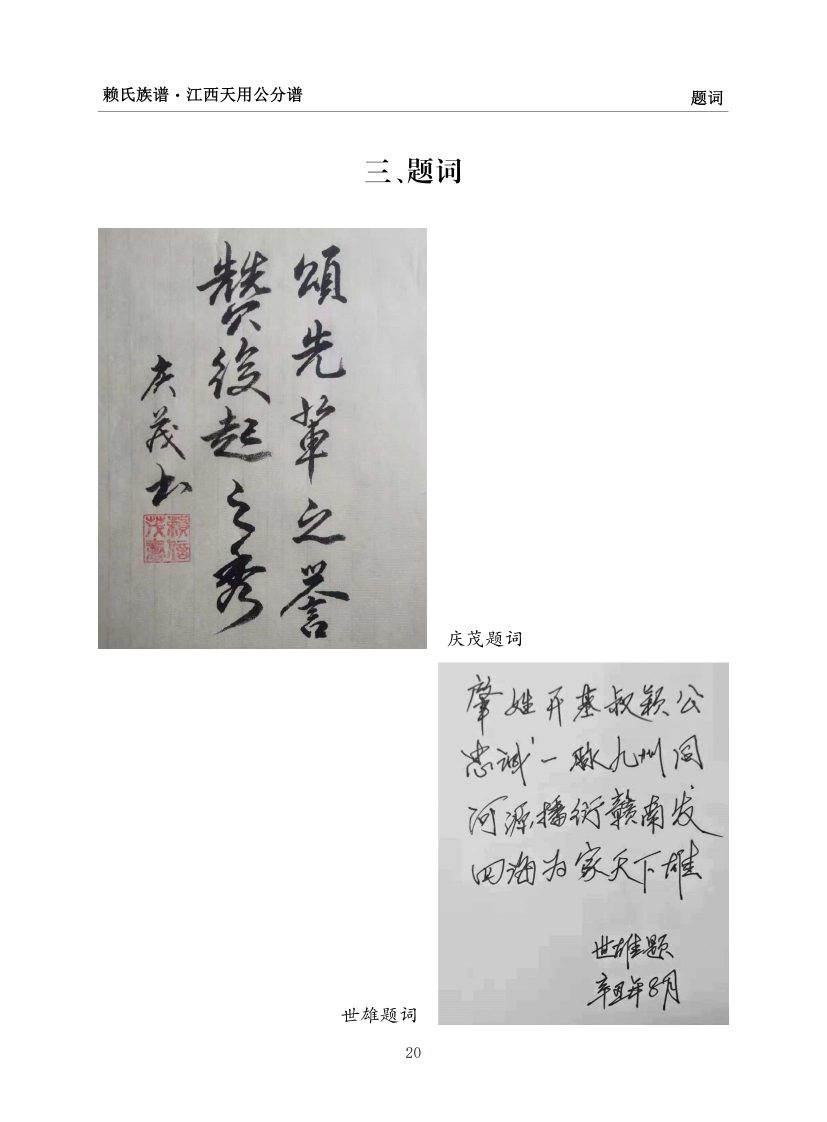 赖氏族谱·江西天用公分谱
题词
三、题词
頌先輩之誉
赞後起之秀
庆茂书
庆茂题词
肇姓开基叔颖公
忠诚一脉九州同
河源播衍赣南发
四海为家天下雄
世雄题
辛丑年8月
世雄题词
20